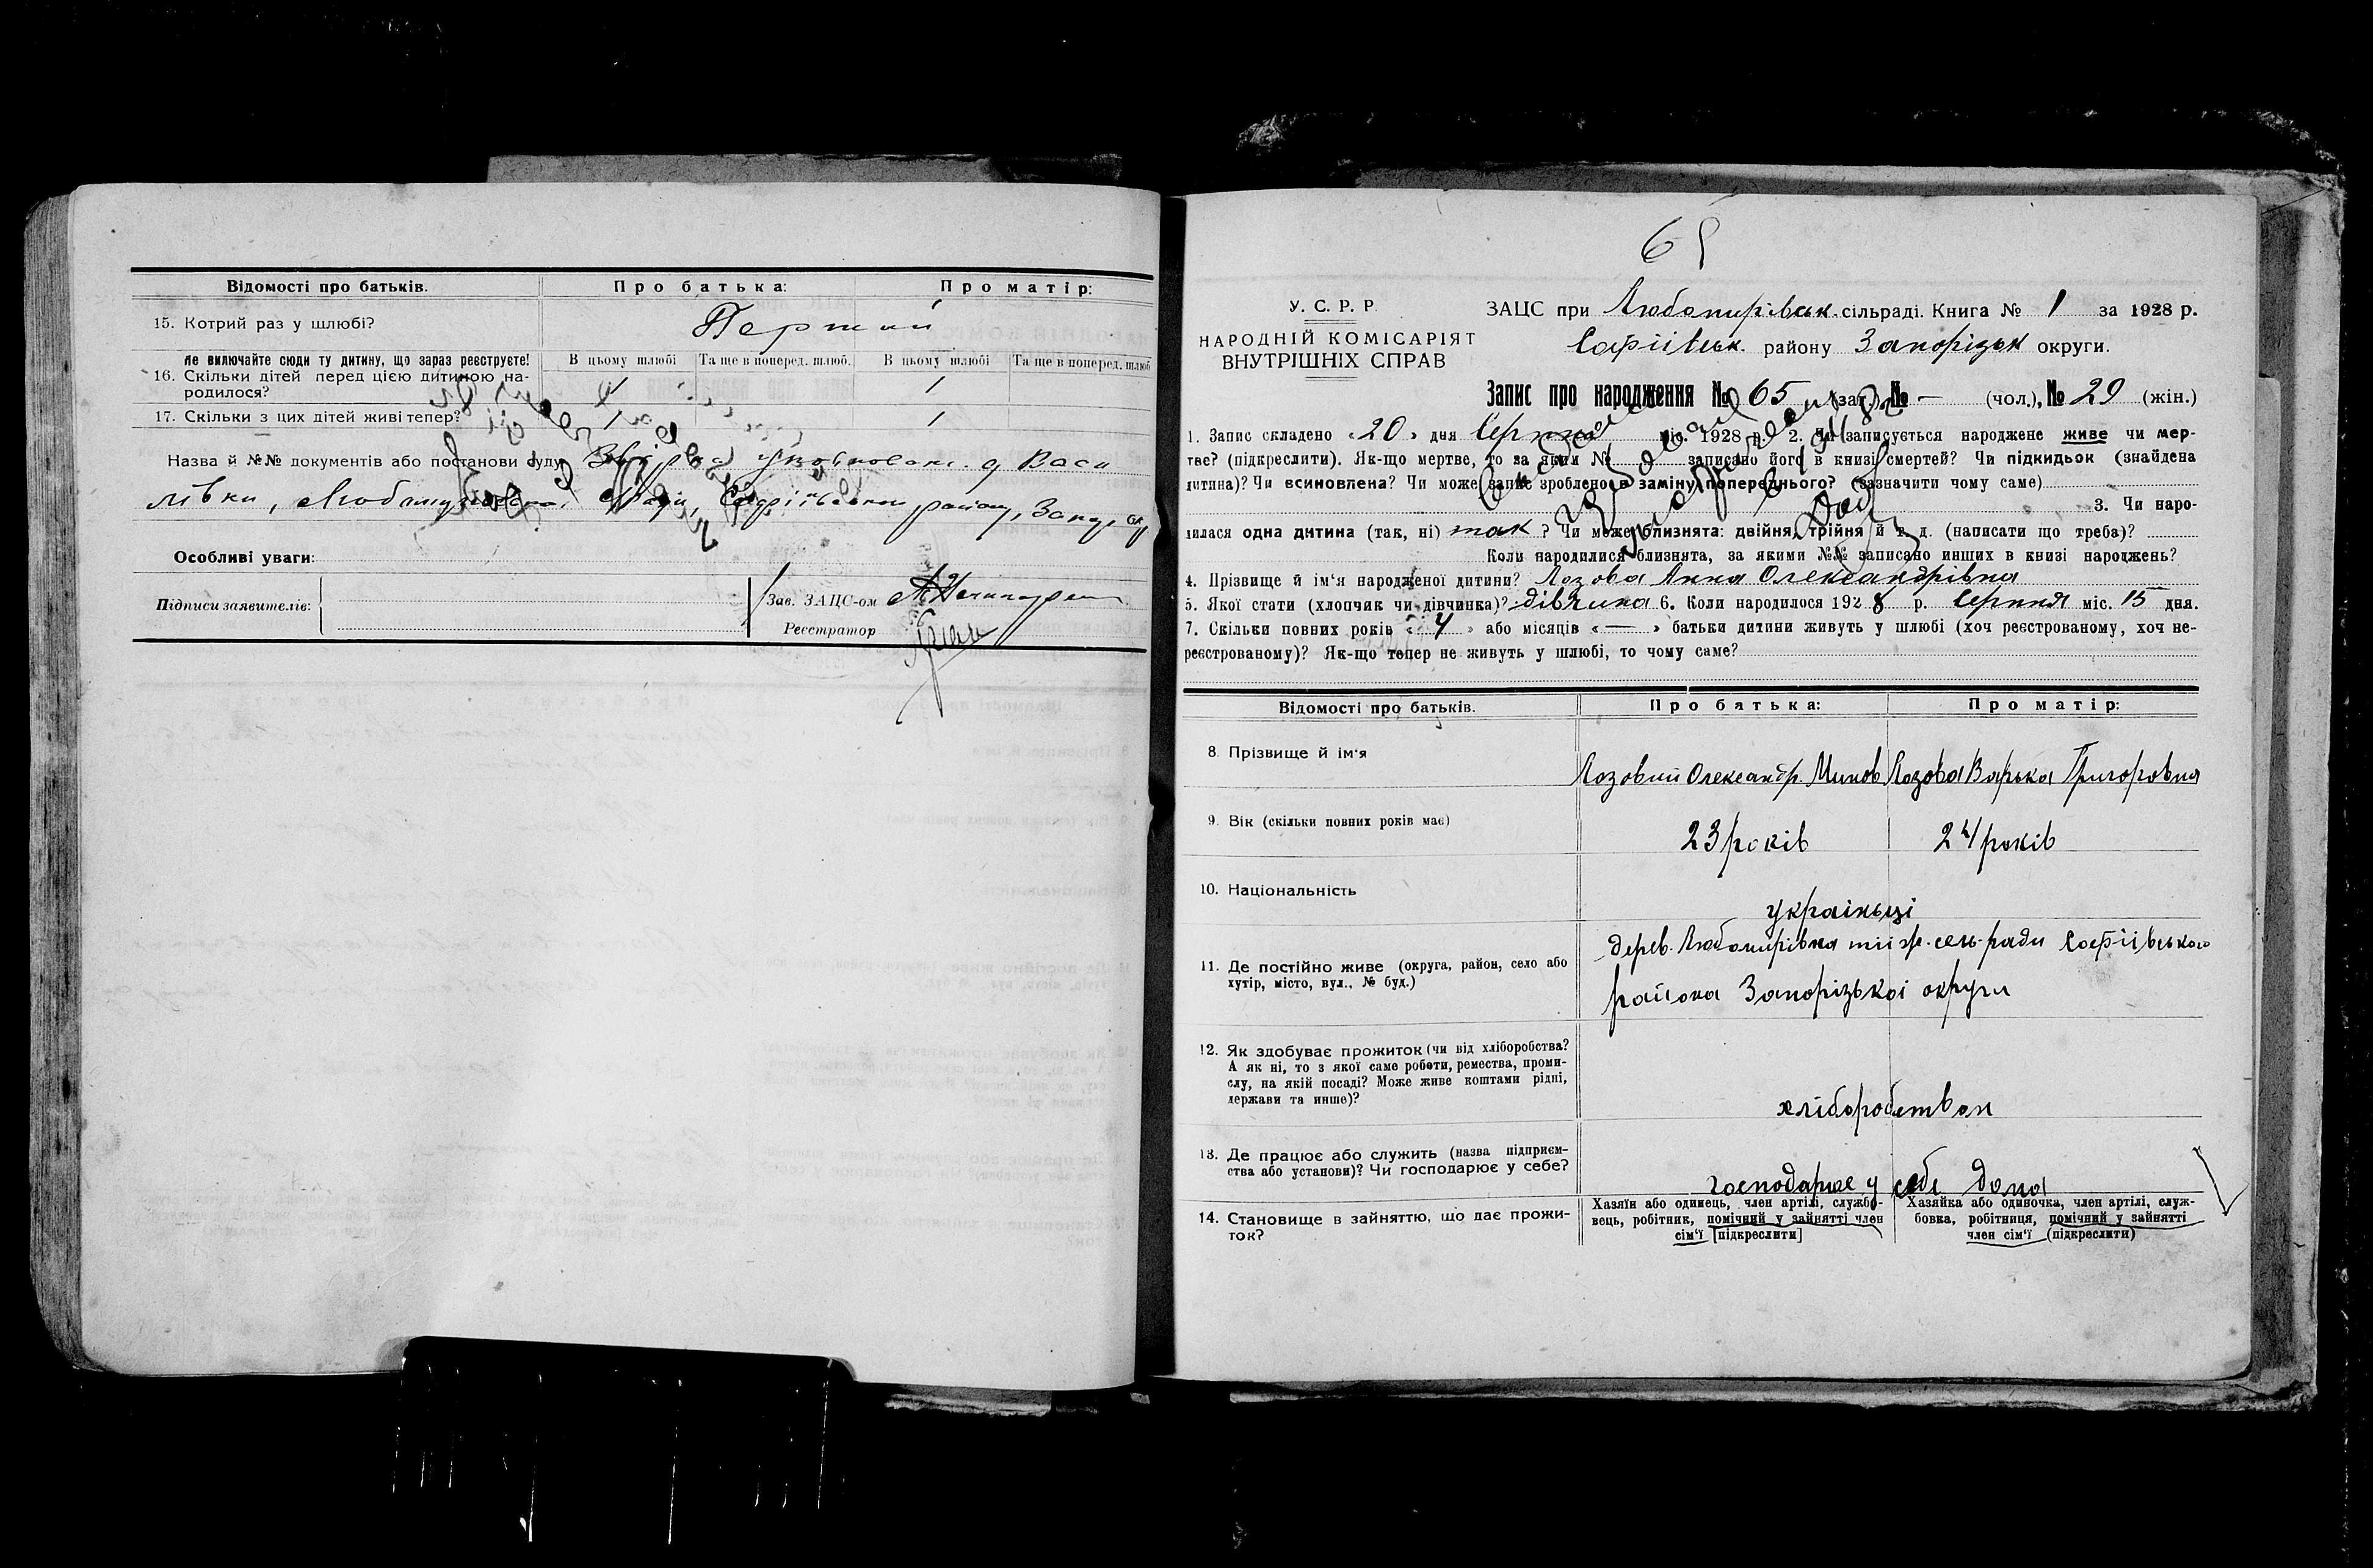 Відомості про батьків. Про батька: Про матір:
15. Котрий раз у шлюбі? Перший
Не включайте сюди ту дитину, що зараз реєструєте! В цьому шлюбі Та ще в поперед. шлюб. В цьому шлюбі Та ще в поперед. шлюб
16. Скільки дітей перед цією дитиною на-
родилося? 1 1
17. Скільки з цих дітей живі тепер? 1 1
Назва й №№ документів або постанови суду: д. Васи
лівки, Сраді, Софіївськ району, Запор. окр
Особливі уваги:
Підписи заявителів: Зав. ЗАЦС-ом
Реєстратор
65
У. С. Р. Р.
НАРОДНІЙ КОМІСАРІЯТ
ВНУТРІШНІХ СПРАВ
ЗАЦС при Любомирівськ. сільраді. Книга № 1 за 1928 р.
Софіївськ. району Запорізьк округи.
Запис про народження № 65 (заг.), № — (чол.), № 29 (жін.)
1. Запис складено «20» дня Серпня міс. 1928 р. 2. Чи записується народжене живе чи мер-
тве? (підкреслити). Як-що мертве, то за яким № записано його в книзі смертей? Чи підкидьок (знайдена
дитина)? Чи всиновлена? Чи може запис зроблено в заміну попереднього? (зазначити чому саме)
3. Чи наро-
дилася одна дитина (так, ні) так ? Чи може близнята: двійня, трійня й т. д. (написати що треба)?
Коли народилися близнята, за якими №№ записано инших в книзі народжень?
4. Прізвище й ім'я народженої дитини? Лозова Анна Олександрівна
5. Якої стати (хлопчик чи дівчинка)? дівчина 6. Коли народилося 1928 р. Серпня міс. 15 дня.
7. Скільки повних років «4» або місяців «—» батьки дитини живуть у шлюбі (хоч реєстрованому, хоч не-
реєстрованому)? Як-що тепер не живуть у шлюбі, то чому саме?
Відомості про батьків. Про батька: Про матір:
8. Прізвище й ім'я Лозовий Олександр. Минов Лозова Варька Григоровна
9. Вік (скільки повних років має) 23 років 24 років
10. Національність україньці
11. Де постійно живе (округа, район, село або
хутір, місто, вул., № буд.) дерев. Любомирівка тиіж. сель-ради Софіївського
района Запорізькоі округи
12. Як здобуває прожиток (чи від хліборобства?
А як ні, то з якої саме роботи, ремества, проми-
слу, на якій посаді? Може живе коштами рідні,
держави та инше)? хліборобством
13. Де працює або служить (назва підприєм-
ства або установи)? Чи господарює у себе? господарює у себе дома
14. Становище в зайняттю, що дає прожи-
ток?
Хазяїн або одинець, член артілі, службо-
вець, робітник, помічний у зайнятті член
сім'ї [підкреслити]
Хазяйка або одиночка, член артілі, служ-
бовка, робітниця, помічний у зайнятті
член сім'ї (підкреслити)